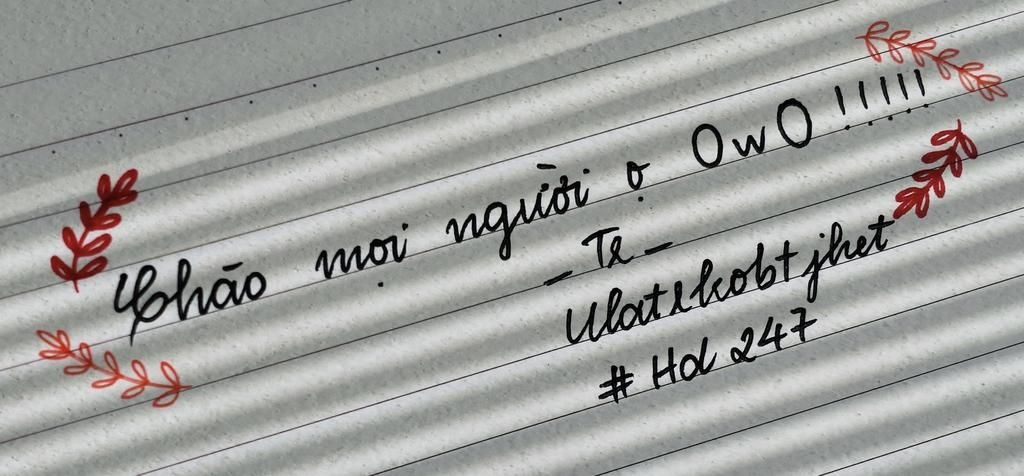 Chào mọi người ọ OwO !!!!!
_ Te _
Ulatekobtjhet
# Hd 247